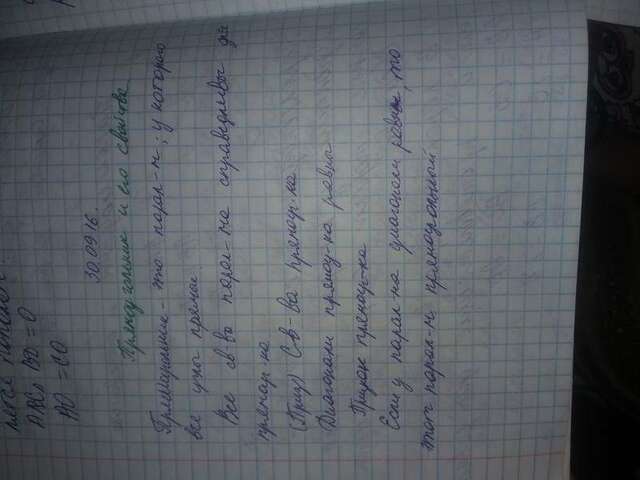 AC ∩ BD = O
AO = CO
30.09.16.
Прямоугольник и его свойства
Прямоугольник - это парал-м, у которого
все углы прямые.
Все св-ва парал-ма справедливы для
прямоуг-ка
(Приз) Св-ва прямоуг-ка
Диагонали прямоуг-ка равны
Призн прямоуг-ка
Если у парал-ма диагонали равны, то
этот парал-м прямоугольный